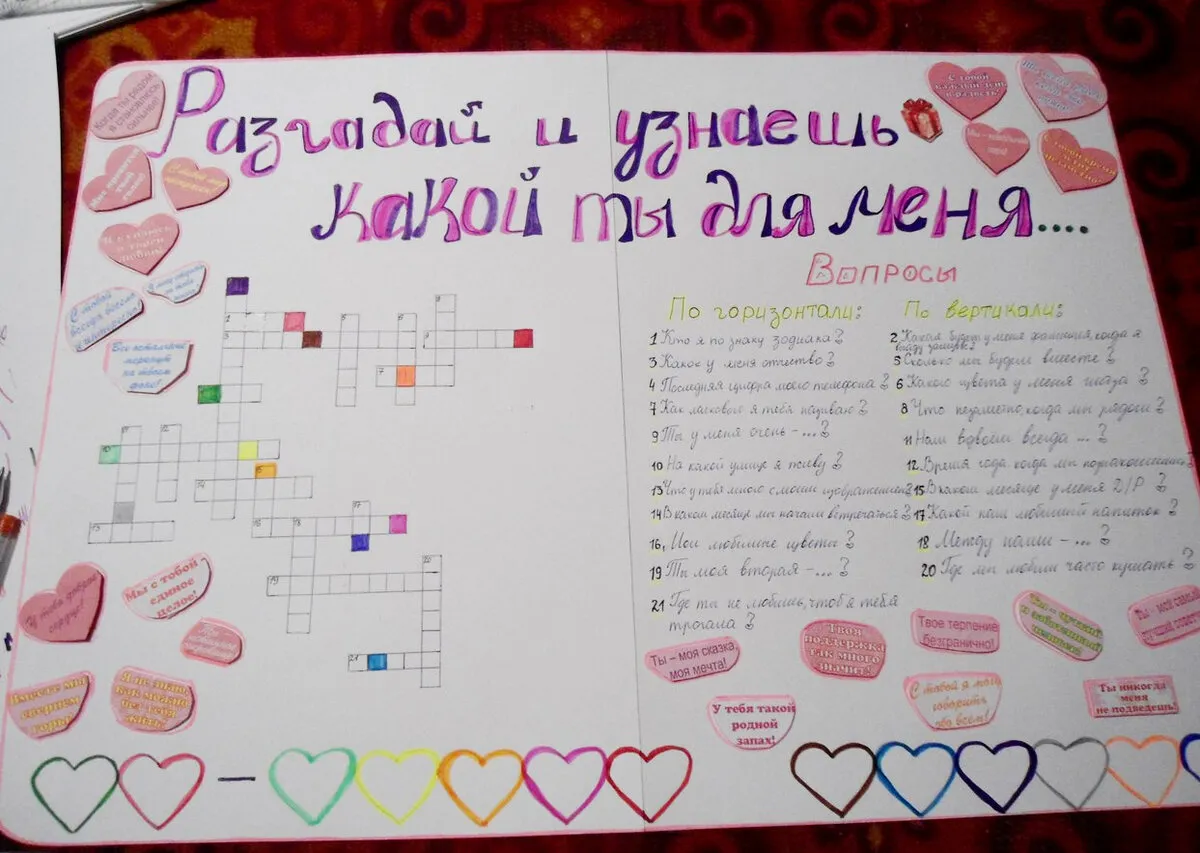 Разгадай и узнаешь
какой ты для меня....
Когда ты рядом,
я становлюсь
сильнее!
С тобой
всегда весело
Все остальные
меркнут
на твоём
фоне!
С тобой
каждый день
Вопросы
По горизонтали:
1 Кто я по знаку зодиака?
3 Какое у меня отчество?
4 Последняя цифра моего телефона?
7 Как ласково я тебя называю?
9 Ты у меня очень - ...?
10 На какой улице я живу?
13 Что у тебя много с моим изображением?
14 В каком месяце мы начали встречаться?
16, Мои любимые цветы?
19 Ты моя вторая - ...?
21 Где ты не любишь, чтоб я тебя
трогала?
По вертикали:
2 Какая будет у меня фамилия, когда я
выйду замуж?
5 Сколько мы будем вместе?
6 Какого цвета у меня глаза?
8 Что незаметно, когда мы рядом?
11 Нам вдвоём всегда ...?
12 Время года, когда мы познакомились?
15 В каком месяце у меня Д/Р?
17 Какой наш любимый напиток?
18 Между нами - ...?
20 Где мы любим часто кушать?
У тебя доброе
сердце!
Мы с тобой
единое
целое!
Вместе мы
свернем
горы!
Я не знаю,
как можно
без тебя
жить!
Ты – моя сказка,
моя мечта!
Твоя
поддержка
так много
значит!
Твое терпение
безгранично!
Ты – чуткий
и заботливый
Ты – мой самый
лучший
У тебя такой
родной
запах!
С тобой я могу
говорить
обо всем!
Ты никогда
меня
не подведешь!